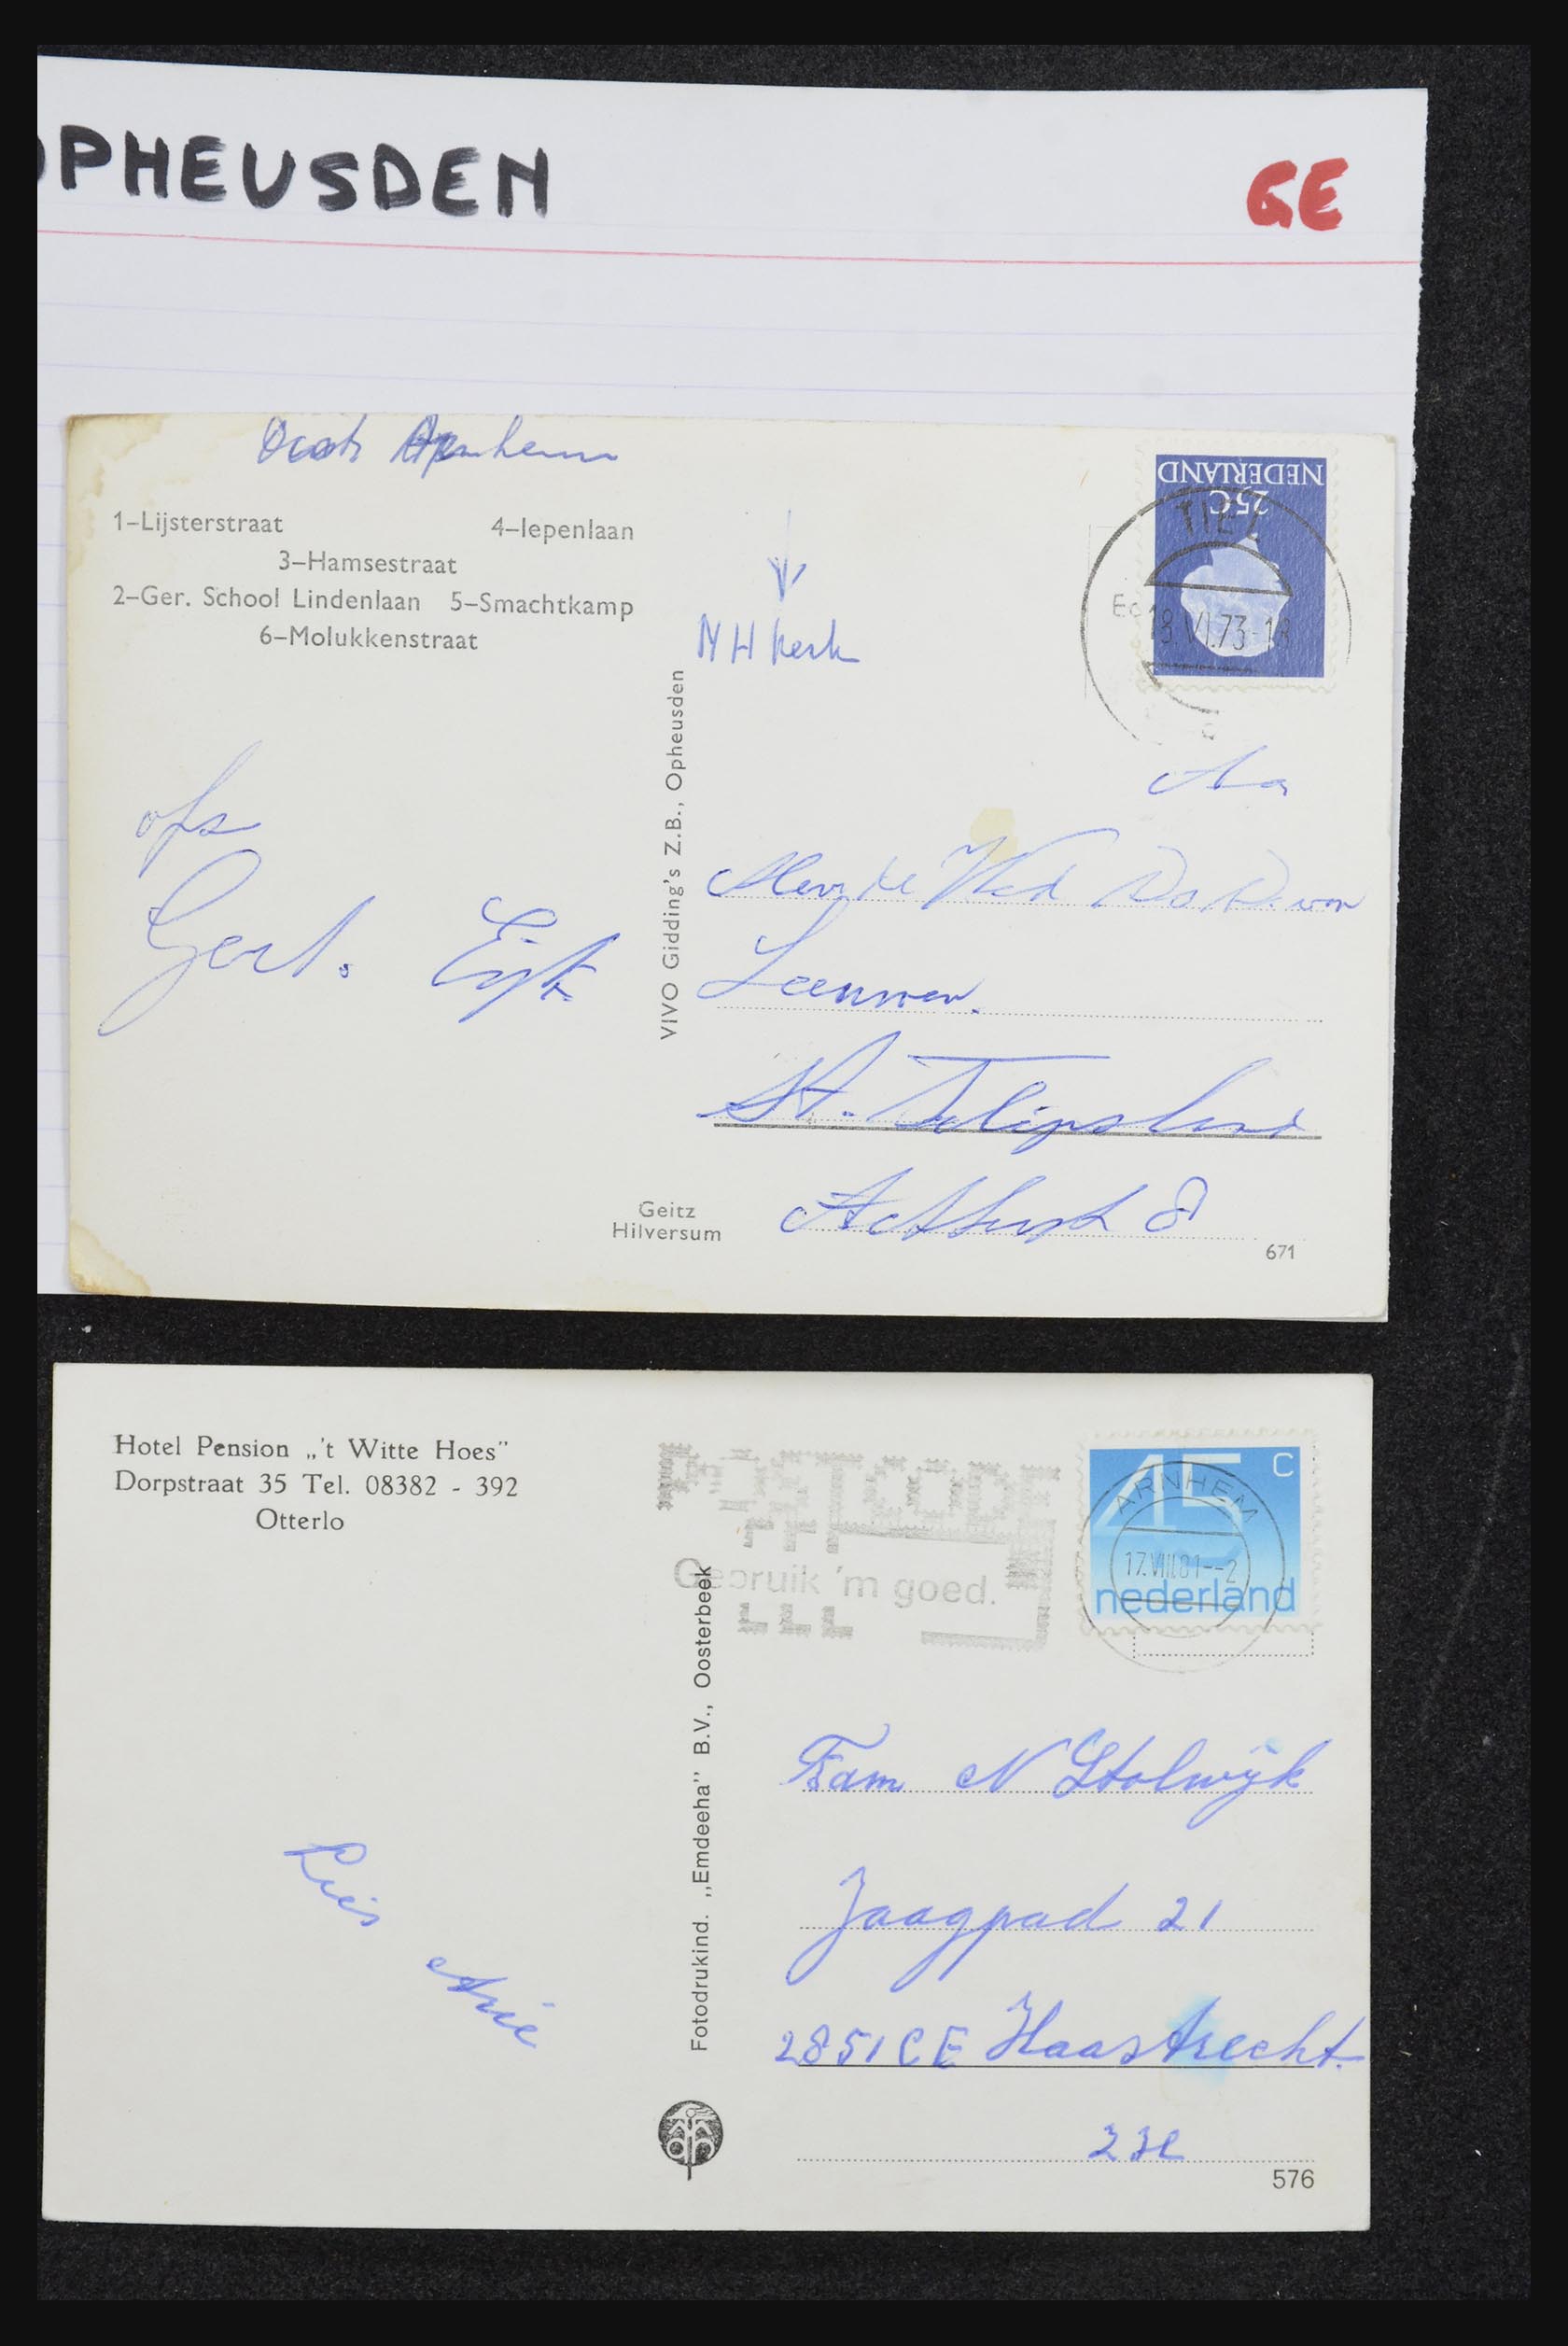 OPHEUSDEN
GE
Arnhem
1-Lijsterstraat 4-Iepenlaan
3-Hamsestraat
2-Ger. School Lindenlaan 5-Smachtkamp
6-Molukkenstraat
NH kerk
NEDERLAND
25C
TIEL
18.VI.73-18
Gert. Eijk
VIVO Gidding's Z.B., Opheusden
Aan
Mevr de Wed Ds. D. van
Leeuwen.
St. Filipsland
Achterstr 8
Geitz
Hilversum
671
Hotel Pension „'t Witte Hoes”
Dorpstraat 35 Tel. 08382 - 392
Otterlo
Postcode
Gebruik 'm goed.
45 C
nederland
ARNHEM
17.VIII.81--2
Fotodrukind. „Emdeeha” B.V., Oosterbeek
Lies
Arie
Fam N Stolwijk
Jaagpad 21
2851CE Haastrecht.
ZH
576